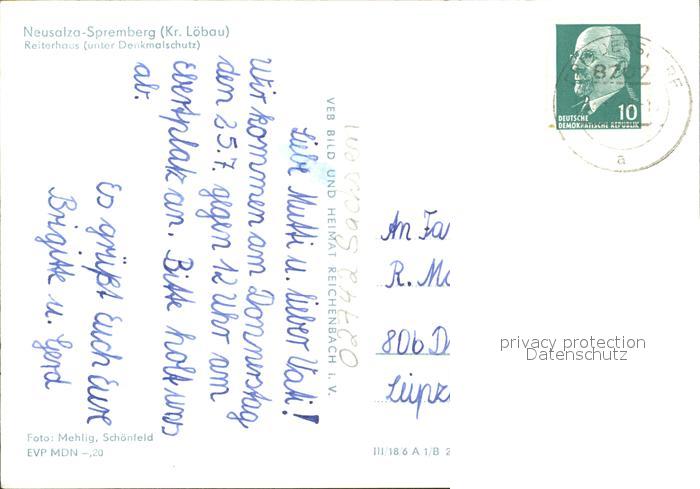 Neusalza-Spremberg (Kr. Löbau)
Reiterhaus (unter Denkmalschutz)
Liebe Mutti u. lieber Vati!
Wir kommen am Donnerstag
den 25.7. gegen 12 Uhr am
Ebertplatz an. Bitte holt uns
ab.
Es grüßt Euch Eure
Brigitte u. Gerd
VEB BILD UND HEIMAT REICHENBACH i. V.
An Fa
R. M
806 D
Leipz
DEUTSCHE
DEMOKRATISCHE REPUBLIK
10
a
privacy protection
Datenschutz
Foto: Mehlig, Schönfeld
EVP MDN –,20
III/18/6 A 1/B 2